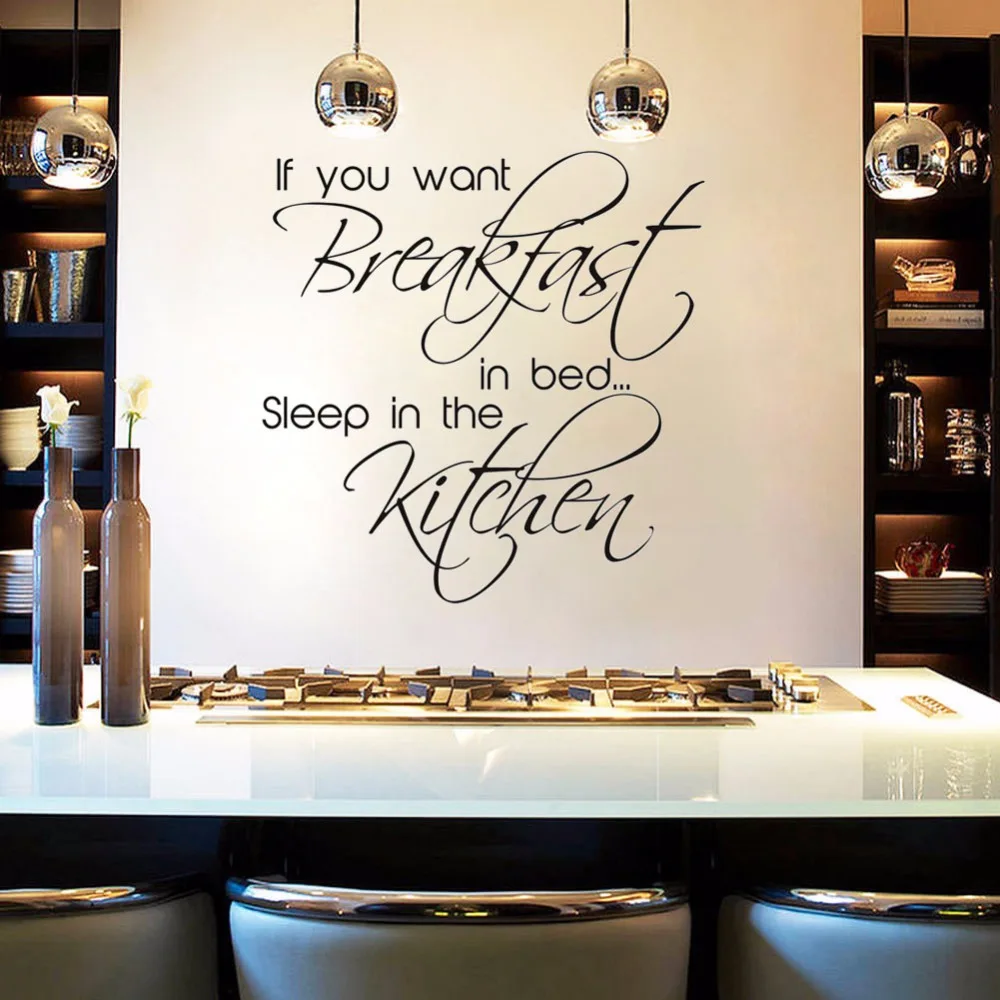 If you want
Breakfast
in bed...
Sleep in the
Kitchen